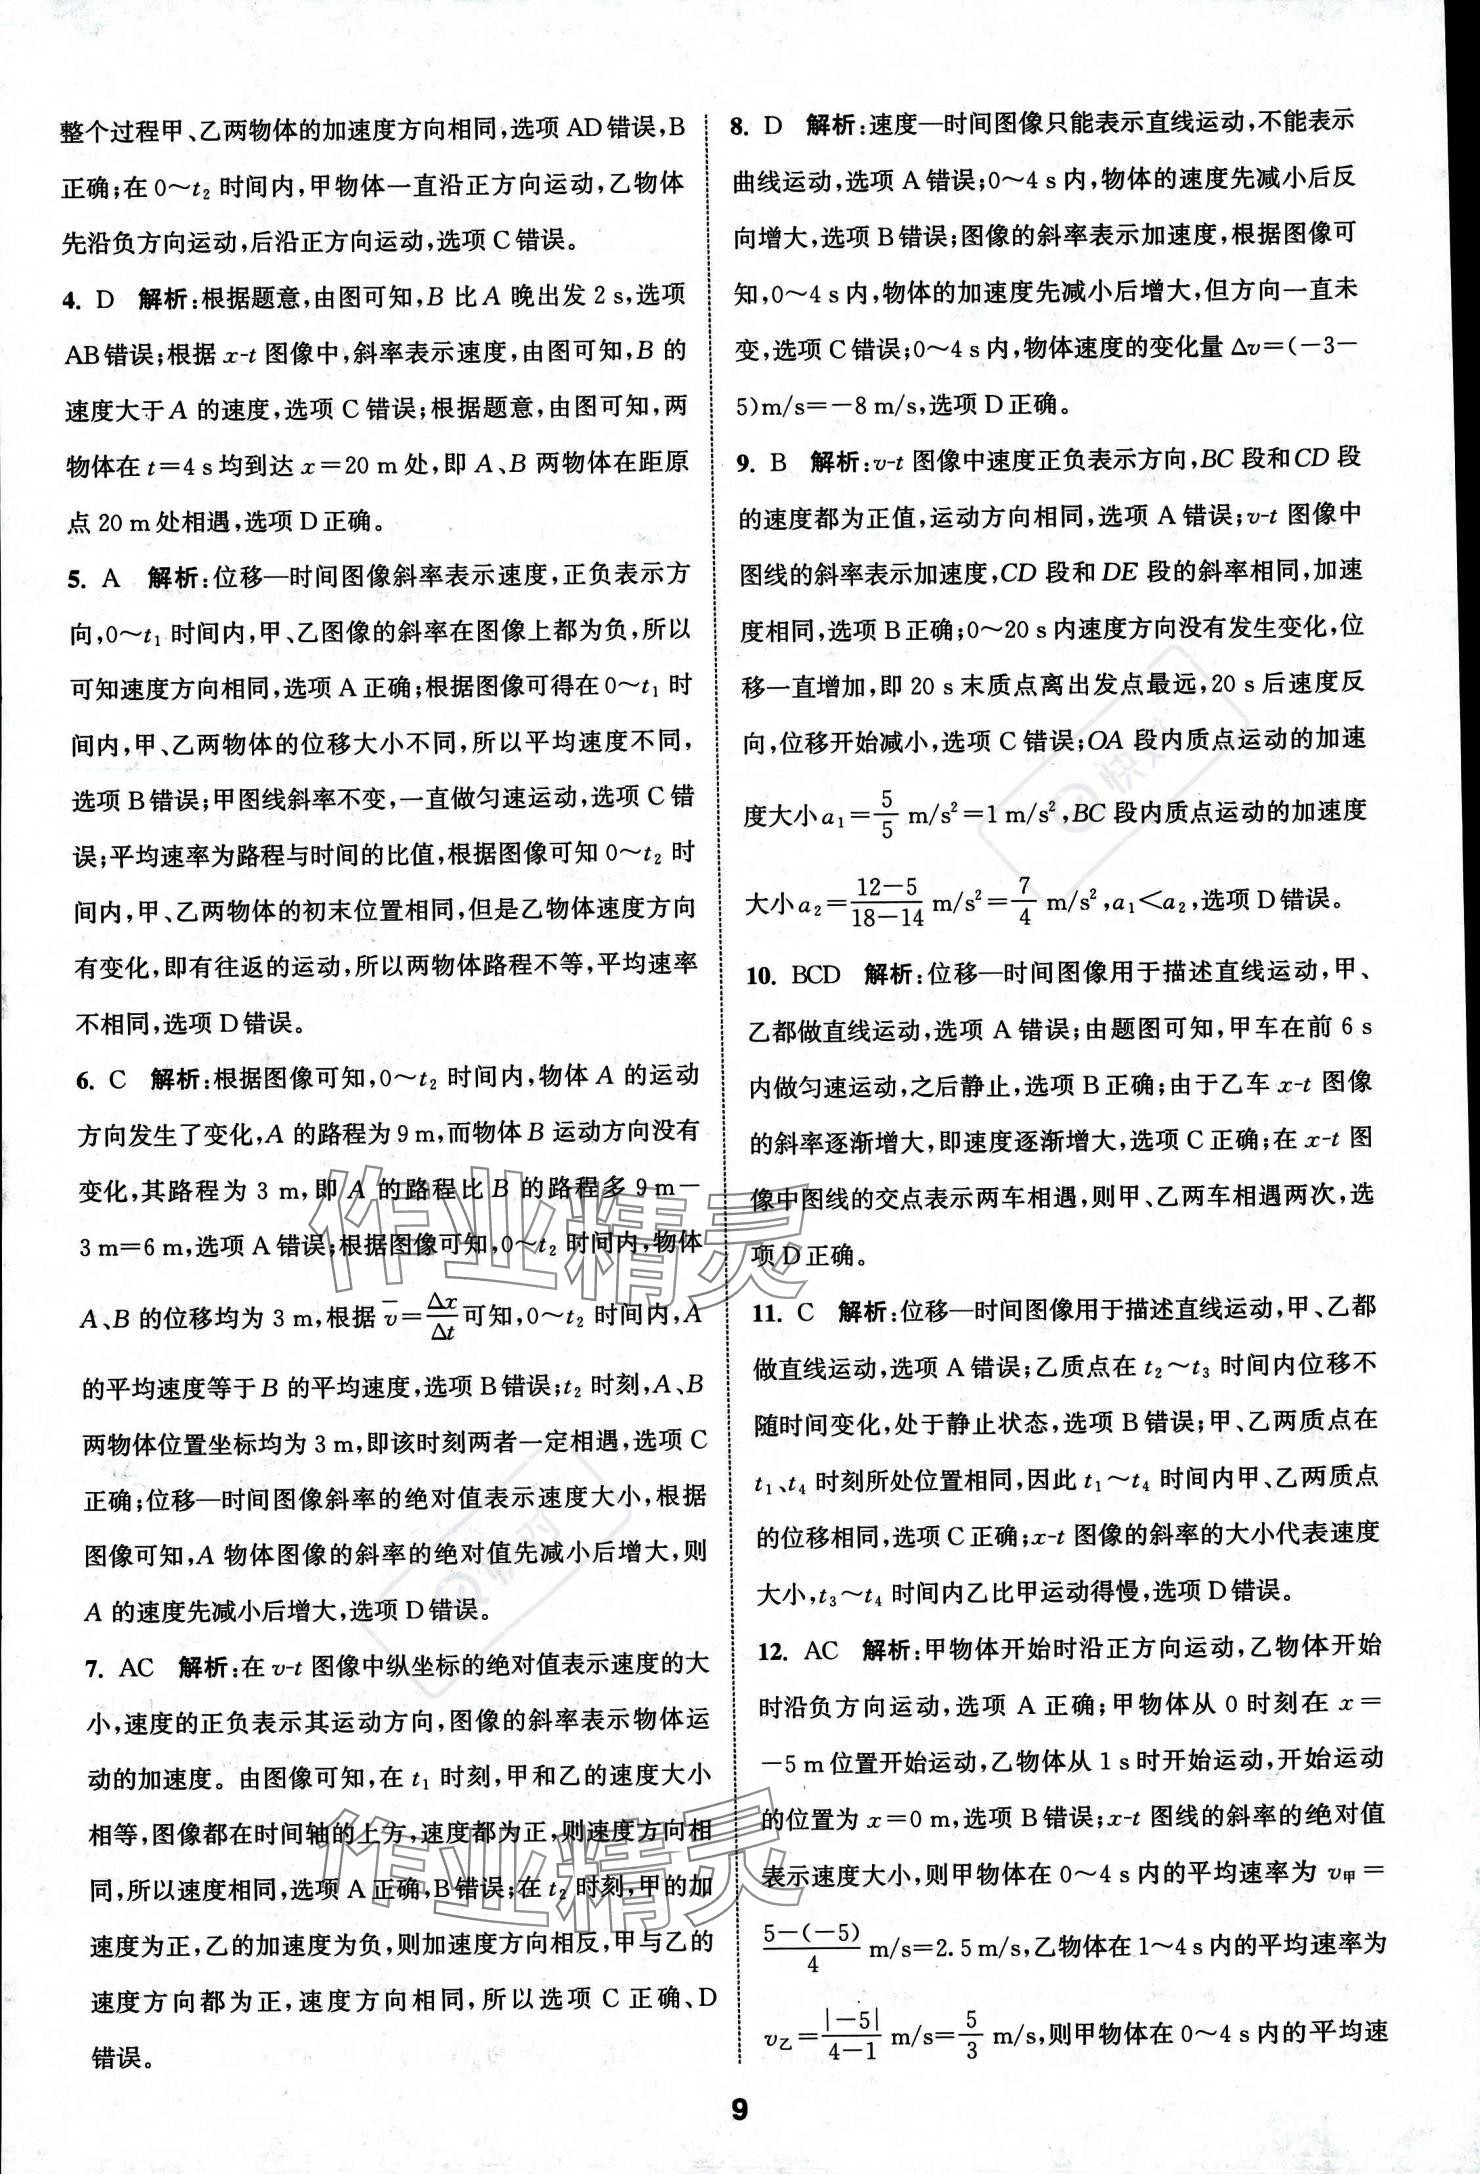 整个过程甲、乙两物体的加速度方向相同,选项AD错误,B
正确;在0~t₂时间内,甲物体一直沿正方向运动,乙物体
先沿负方向运动,后沿正方向运动,选项C错误。
4. D 解析:根据题意,由图可知,B比A晚出发2 s,选项
AB错误;根据x-t图像中,斜率表示速度,由图可知,B的
速度大于A的速度,选项C错误;根据题意,由图可知,两
物体在t=4 s均到达x=20 m处,即A、B两物体在距原
点20 m处相遇,选项D正确。
5. A 解析:位移—时间图像斜率表示速度,正负表示方
向,0~t₁时间内,甲、乙图像的斜率在图像上都为负,所以
可知速度方向相同,选项A正确;根据图像可得在0~t₁时
间内,甲、乙两物体的位移大小不同,所以平均速度不同,
选项B错误;甲图线斜率不变,一直做匀速运动,选项C错
误;平均速率为路程与时间的比值,根据图像可知0~t₂时
间内,甲、乙两物体的初末位置相同,但是乙物体速度方向
有变化,即有往返的运动,所以两物体路程不等,平均速率
不相同,选项D错误。
6. C 解析:根据图像可知,0~t₂时间内,物体A的运动
方向发生了变化,A的路程为9 m,而物体B运动方向没有
变化,其路程为3 m,即A的路程比B的路程多9 m-
3 m=6 m,选项A错误;根据图像可知,0~t₂时间内,物体
A、B的位移均为3 m,根据v̄=Δx/Δt可知,0~t₂时间内,A
的平均速度等于B的平均速度,选项B错误;t₂时刻,A、B
两物体位置坐标均为3 m,即该时刻两者一定相遇,选项C
正确;位移—时间图像斜率的绝对值表示速度大小,根据
图像可知,A物体图像的斜率的绝对值先减小后增大,则
A的速度先减小后增大,选项D错误。
7. AC 解析:在v-t图像中纵坐标的绝对值表示速度的大
小,速度的正负表示其运动方向,图像的斜率表示物体运
动的加速度。由图像可知,在t₁时刻,甲和乙的速度大小
相等,图像都在时间轴的上方,速度都为正,则速度方向相
同,所以速度相同,选项A正确,B错误;在t₂时刻,甲的加
速度为正,乙的加速度为负,则加速度方向相反,甲与乙的
速度方向都为正,速度方向相同,所以选项C正确、D
错误。
8. D 解析:速度—时间图像只能表示直线运动,不能表示
曲线运动,选项A错误;0~4 s内,物体的速度先减小后反
向增大,选项B错误;图像的斜率表示加速度,根据图像可
知,0~4 s内,物体的加速度先减小后增大,但方向一直未
变,选项C错误;0~4 s内,物体速度的变化量Δv=(-3-
5)m/s=-8 m/s,选项D正确。
9. B 解析:v-t图像中速度正负表示方向,BC段和CD段
的速度都为正值,运动方向相同,选项A错误;v-t图像中
图线的斜率表示加速度,CD段和DE段的斜率相同,加速
度相同,选项B正确;0~20 s内速度方向没有发生变化,位
移一直增加,即20 s末质点离出发点最远,20 s后速度反
向,位移开始减小,选项C错误;OA段内质点运动的加速
度大小a₁=5/5 m/s²=1 m/s²,BC段内质点运动的加速度
大小a₂=(12-5)/(18-14) m/s²=7/4 m/s²,a₁<a₂,选项D错误。
10. BCD 解析:位移—时间图像用于描述直线运动,甲、
乙都做直线运动,选项A错误;由题图可知,甲车在前6 s
内做匀速运动,之后静止,选项B正确;由于乙车x-t图像
的斜率逐渐增大,即速度逐渐增大,选项C正确;在x-t图
像中图线的交点表示两车相遇,则甲、乙两车相遇两次,选
项D正确。
11. C 解析:位移—时间图像用于描述直线运动,甲、乙都
做直线运动,选项A错误;乙质点在t₂~t₃时间内位移不
随时间变化,处于静止状态,选项B错误;甲、乙两质点在
t₁、t₄时刻所处位置相同,因此t₁~t₄时间内甲、乙两质点
的位移相同,选项C正确;x-t图像的斜率的大小代表速度
大小,t₃~t₄时间内乙比甲运动得慢,选项D错误。
12. AC 解析:甲物体开始时沿正方向运动,乙物体开始
时沿负方向运动,选项A正确;甲物体从0时刻在x=
-5 m位置开始运动,乙物体从1 s时开始运动,开始运动
的位置为x=0 m,选项B错误;x-t图线的斜率的绝对值
表示速度大小,则甲物体在0~4 s内的平均速率为v甲=
5-(-5)/4 m/s=2.5 m/s,乙物体在1~4 s内的平均速率为
v乙=|-5|/(4-1) m/s=5/3 m/s,则甲物体在0~4 s内的平均速
9
作业精灵
作业精灵